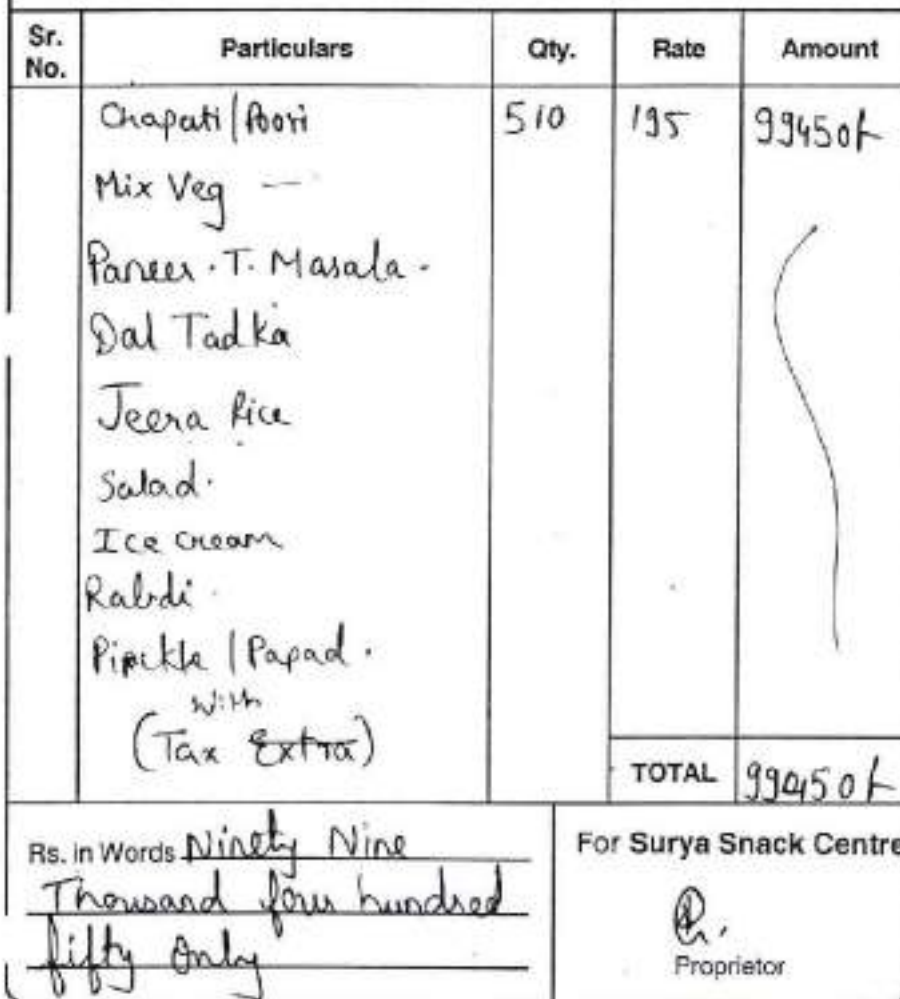 Sr. No. Particulars Qty. Rate Amount
Chapati/Poori 510 195 99450/-
Mix Veg —
Paneer . T. Masala .
Dal Tadka
Jeera Rice
Salad .
Ice cream
Rabdi .
Pipckle | Papad .
with
(Tax Extra)
TOTAL 99450/-
Rs. in Words Ninety Nine
Thousand four hundred
fifty Only
For Surya Snack Centre
Proprietor